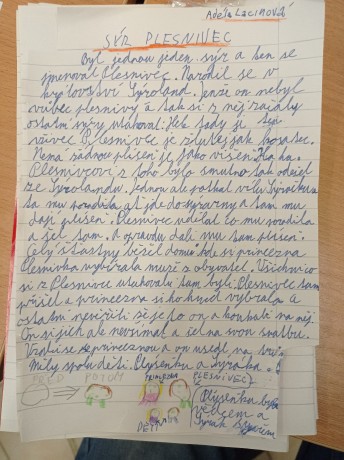 Adéla Lacinová
SÝR PLESNIVEC
Byl jednou jeden sýr a ten se
jmenoval Plesnivec. Narodil se v
království Sýroland. Jenže on nebyl
vůbec plesnivý a tak si z něj začaly
ostatní sýry utahovat: Hele tady je
Plesnivec je žlutej jak
Nemá žádnou plíseň je jako
Plesnivcovi z toho bylo smutno tak odešel
ze Sýrolandu. Jednou ale potkal vílu
ta mu poradila ať jde do sýrárny a tam mu
dají plíseň. Plesnivec udělal co mu poradila
a šel tam. A opravdu dali mu tam plíseň.
Celý šťastný běžel domů kde si princezna
Plesnivka vybírala muže z obyvatel. Všichni co
si z Plesnivce utahovali tam byli. Plesnivec tam
přišel a princezna si ho hned vybrala a
ostatní nevěřili že je to on a koukali na něj.
On si jich ale nevšímal a šel na svou svatbu.
se princeznou a on usedl na trůn.
Měly spolu děti. Olysenku a Syráka.
PŘED POTOM PRINCEZNA PLESNIVEC
DĚTI
Olysenka byla
a
Syrák